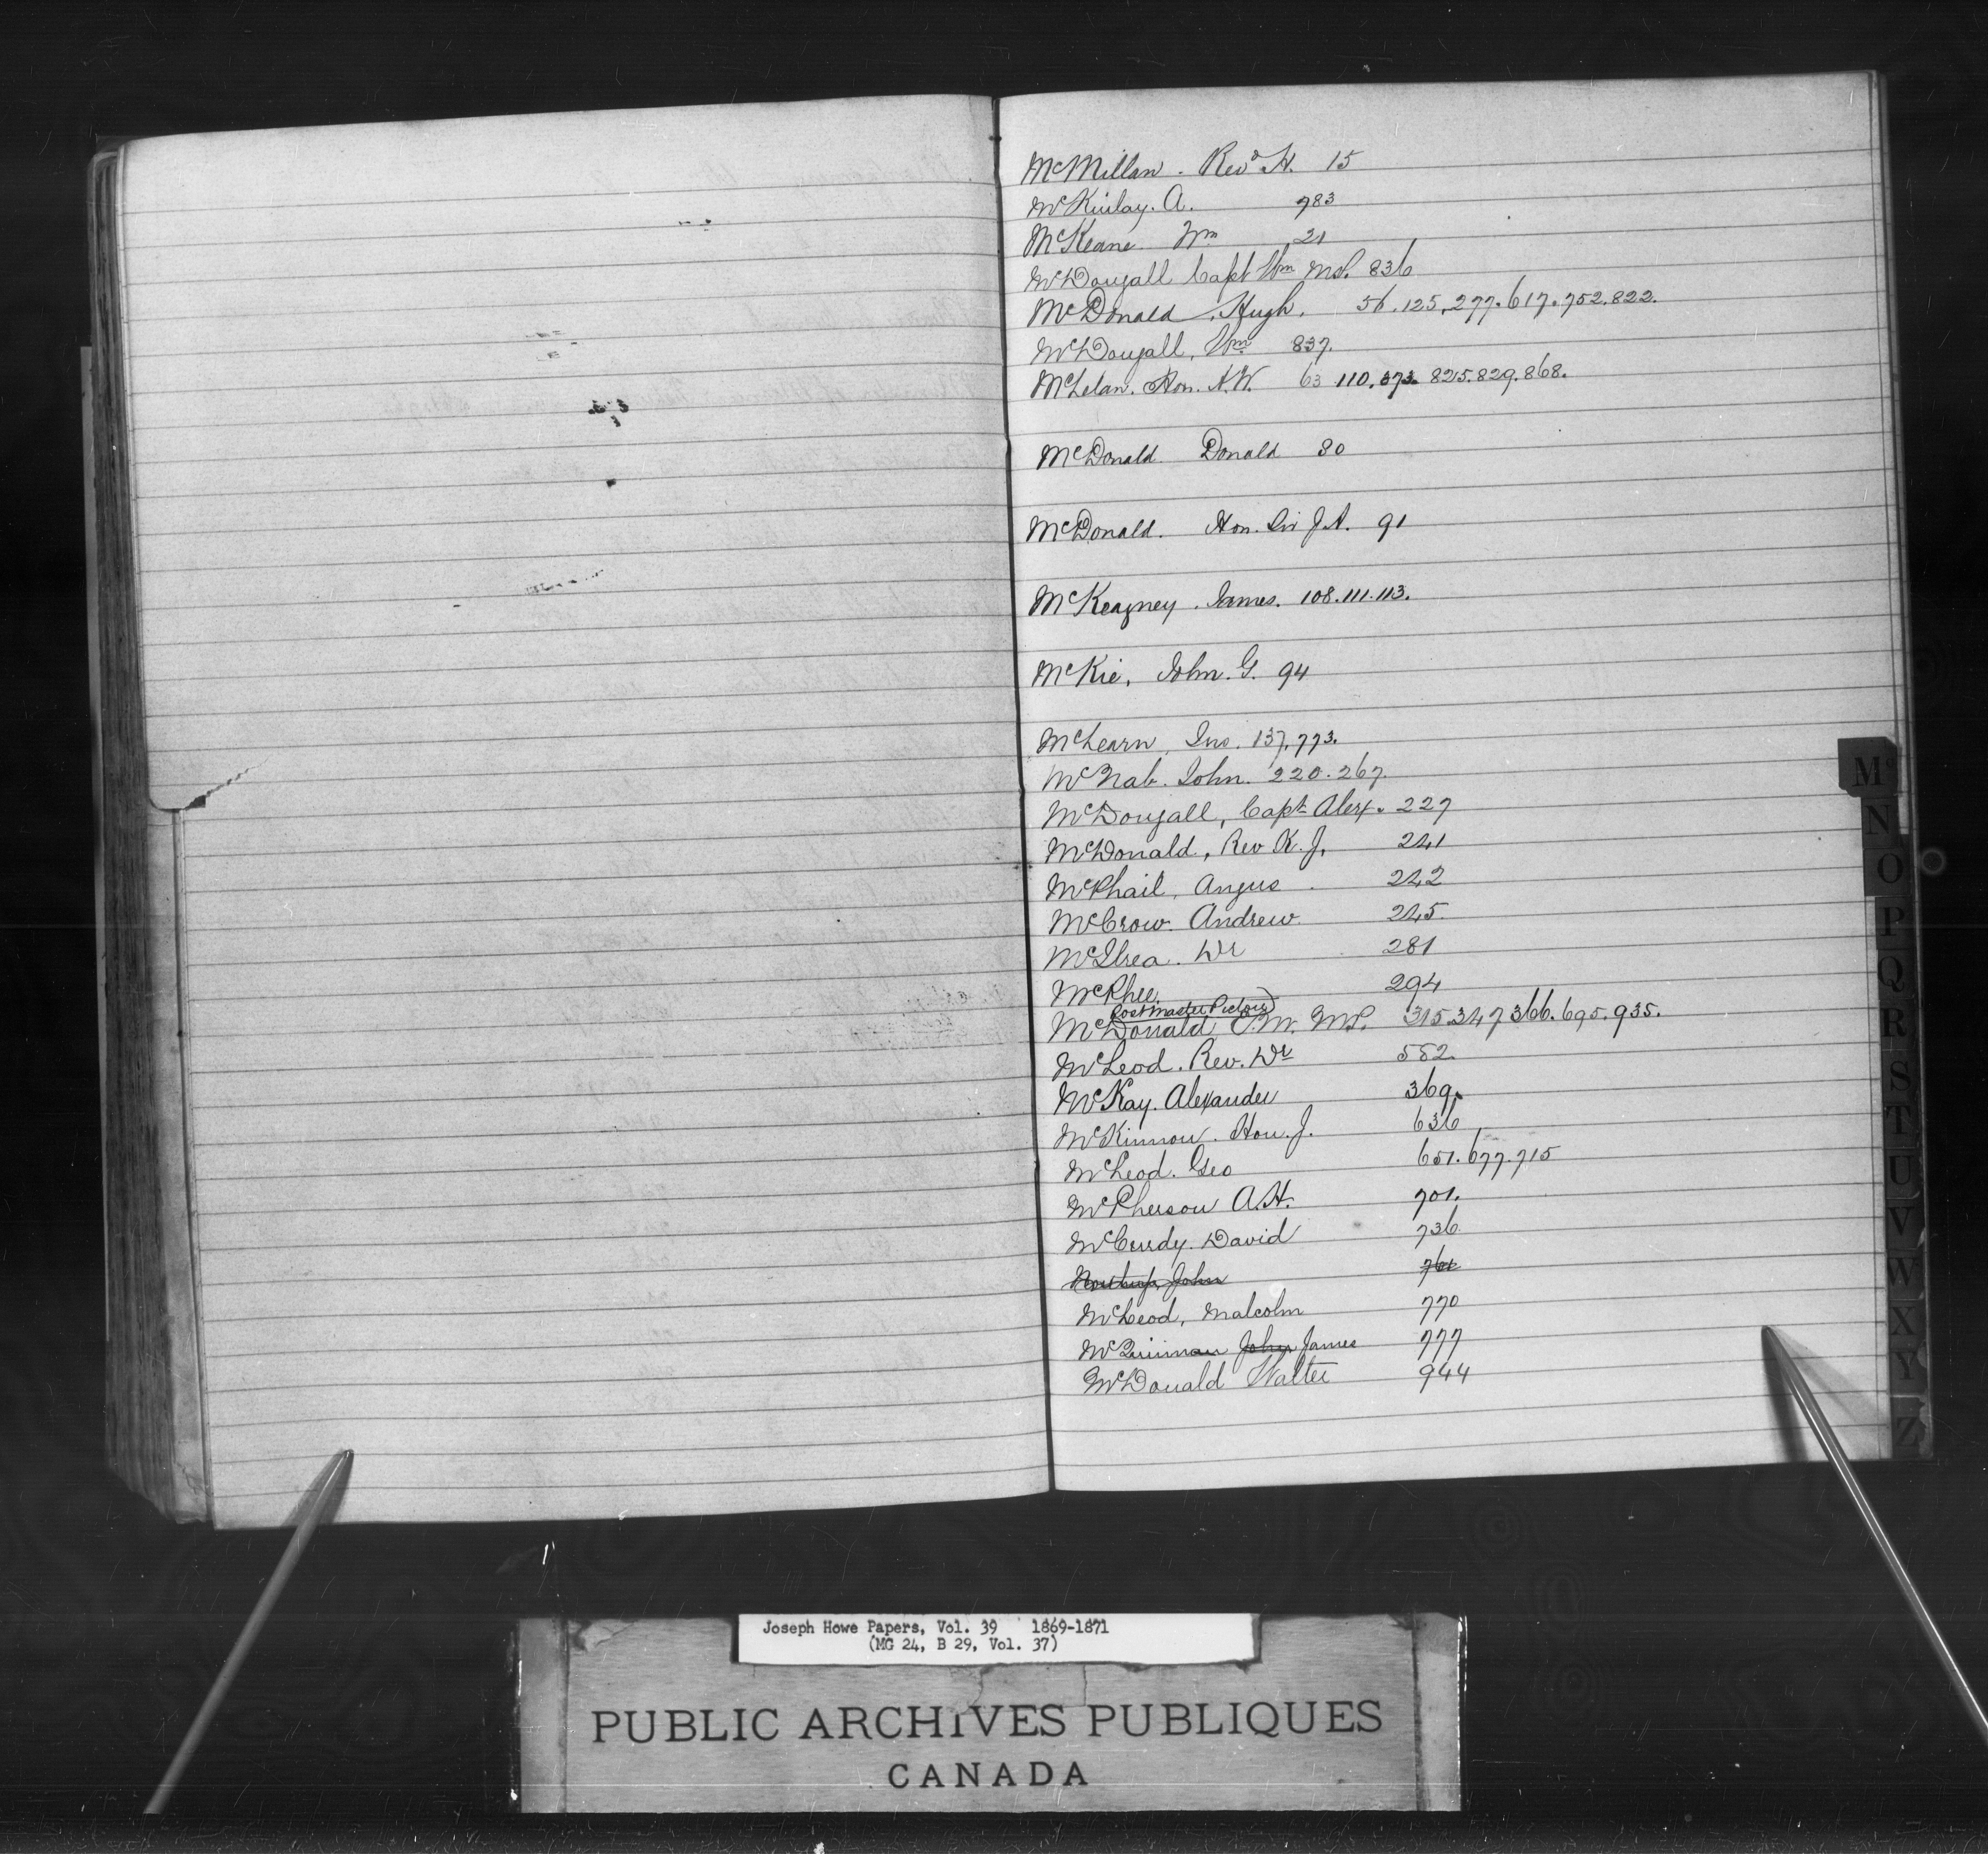 McMillan. Revd H. 15
McKinlay. A. 783
McKeane Wm 21
McDougall Capt Wm M.P. 836
McDonald, Hugh. 56.125.277.617.752.822.
McDougall, Wm 837.
McLelan. Hon. A.W. 63 110.373. 825.829.868.
McDonald Donald 80
McDonald. Hon. Sir J.A. 91
McKeagney. James. 108.111.113.
McKie, John. G. 94
McLearn, Jno. 137.773.
McNab. John. 220.267.
McDougall, Capt Alex. 227
McDonald, Rev K. J. 241
McPhail, Angus. 242
McCrow. Andrew. 245.
Dr 281
McPhee. 294
Postmaster Pictou
McDonald E.M. M.P. 315.347 366.695.935.
McLeod. Rev. Dr 582.
McKay. Alexander 369.
McKinnon. Hon. J. 636
McLeod. Geo 651.677.715
McPherson A.H. 701.
McCurdy. David 736
Northup, John 761
McLeod, Malcolm 770
John James 777
McDonald Walter 944
Mc
N
O
P
Q
R
S
T
U
V
W
X
Y
Z
Joseph Howe Papers, Vol. 39 1869-1871
(MG 24, B 29, Vol. 37)
PUBLIC ARCHIVES PUBLIQUES
CANADA